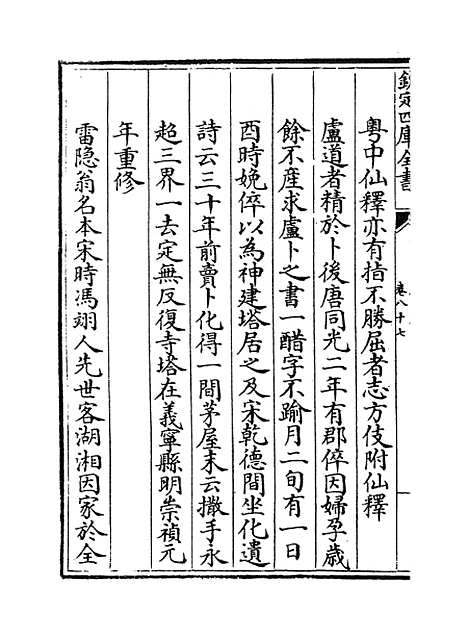 欽定四庫全書
卷八十七
粤中仙釋亦有指不勝屈者志方伎附仙釋
盧道者精於卜後唐同光二年有郡倅因婦孕歲
餘不産求盧卜之書一醋字不踰月二旬有一日
酉時娩倅以為神建塔居之及宋乾德間坐化遺
詩云三十年前賣卜化得一間茅屋末云撒手永
超三界一去定無反復寺塔在義寧縣明崇禎元
年重修
雷隐翁名本宋時馮翊人先世客湖湘因家於全